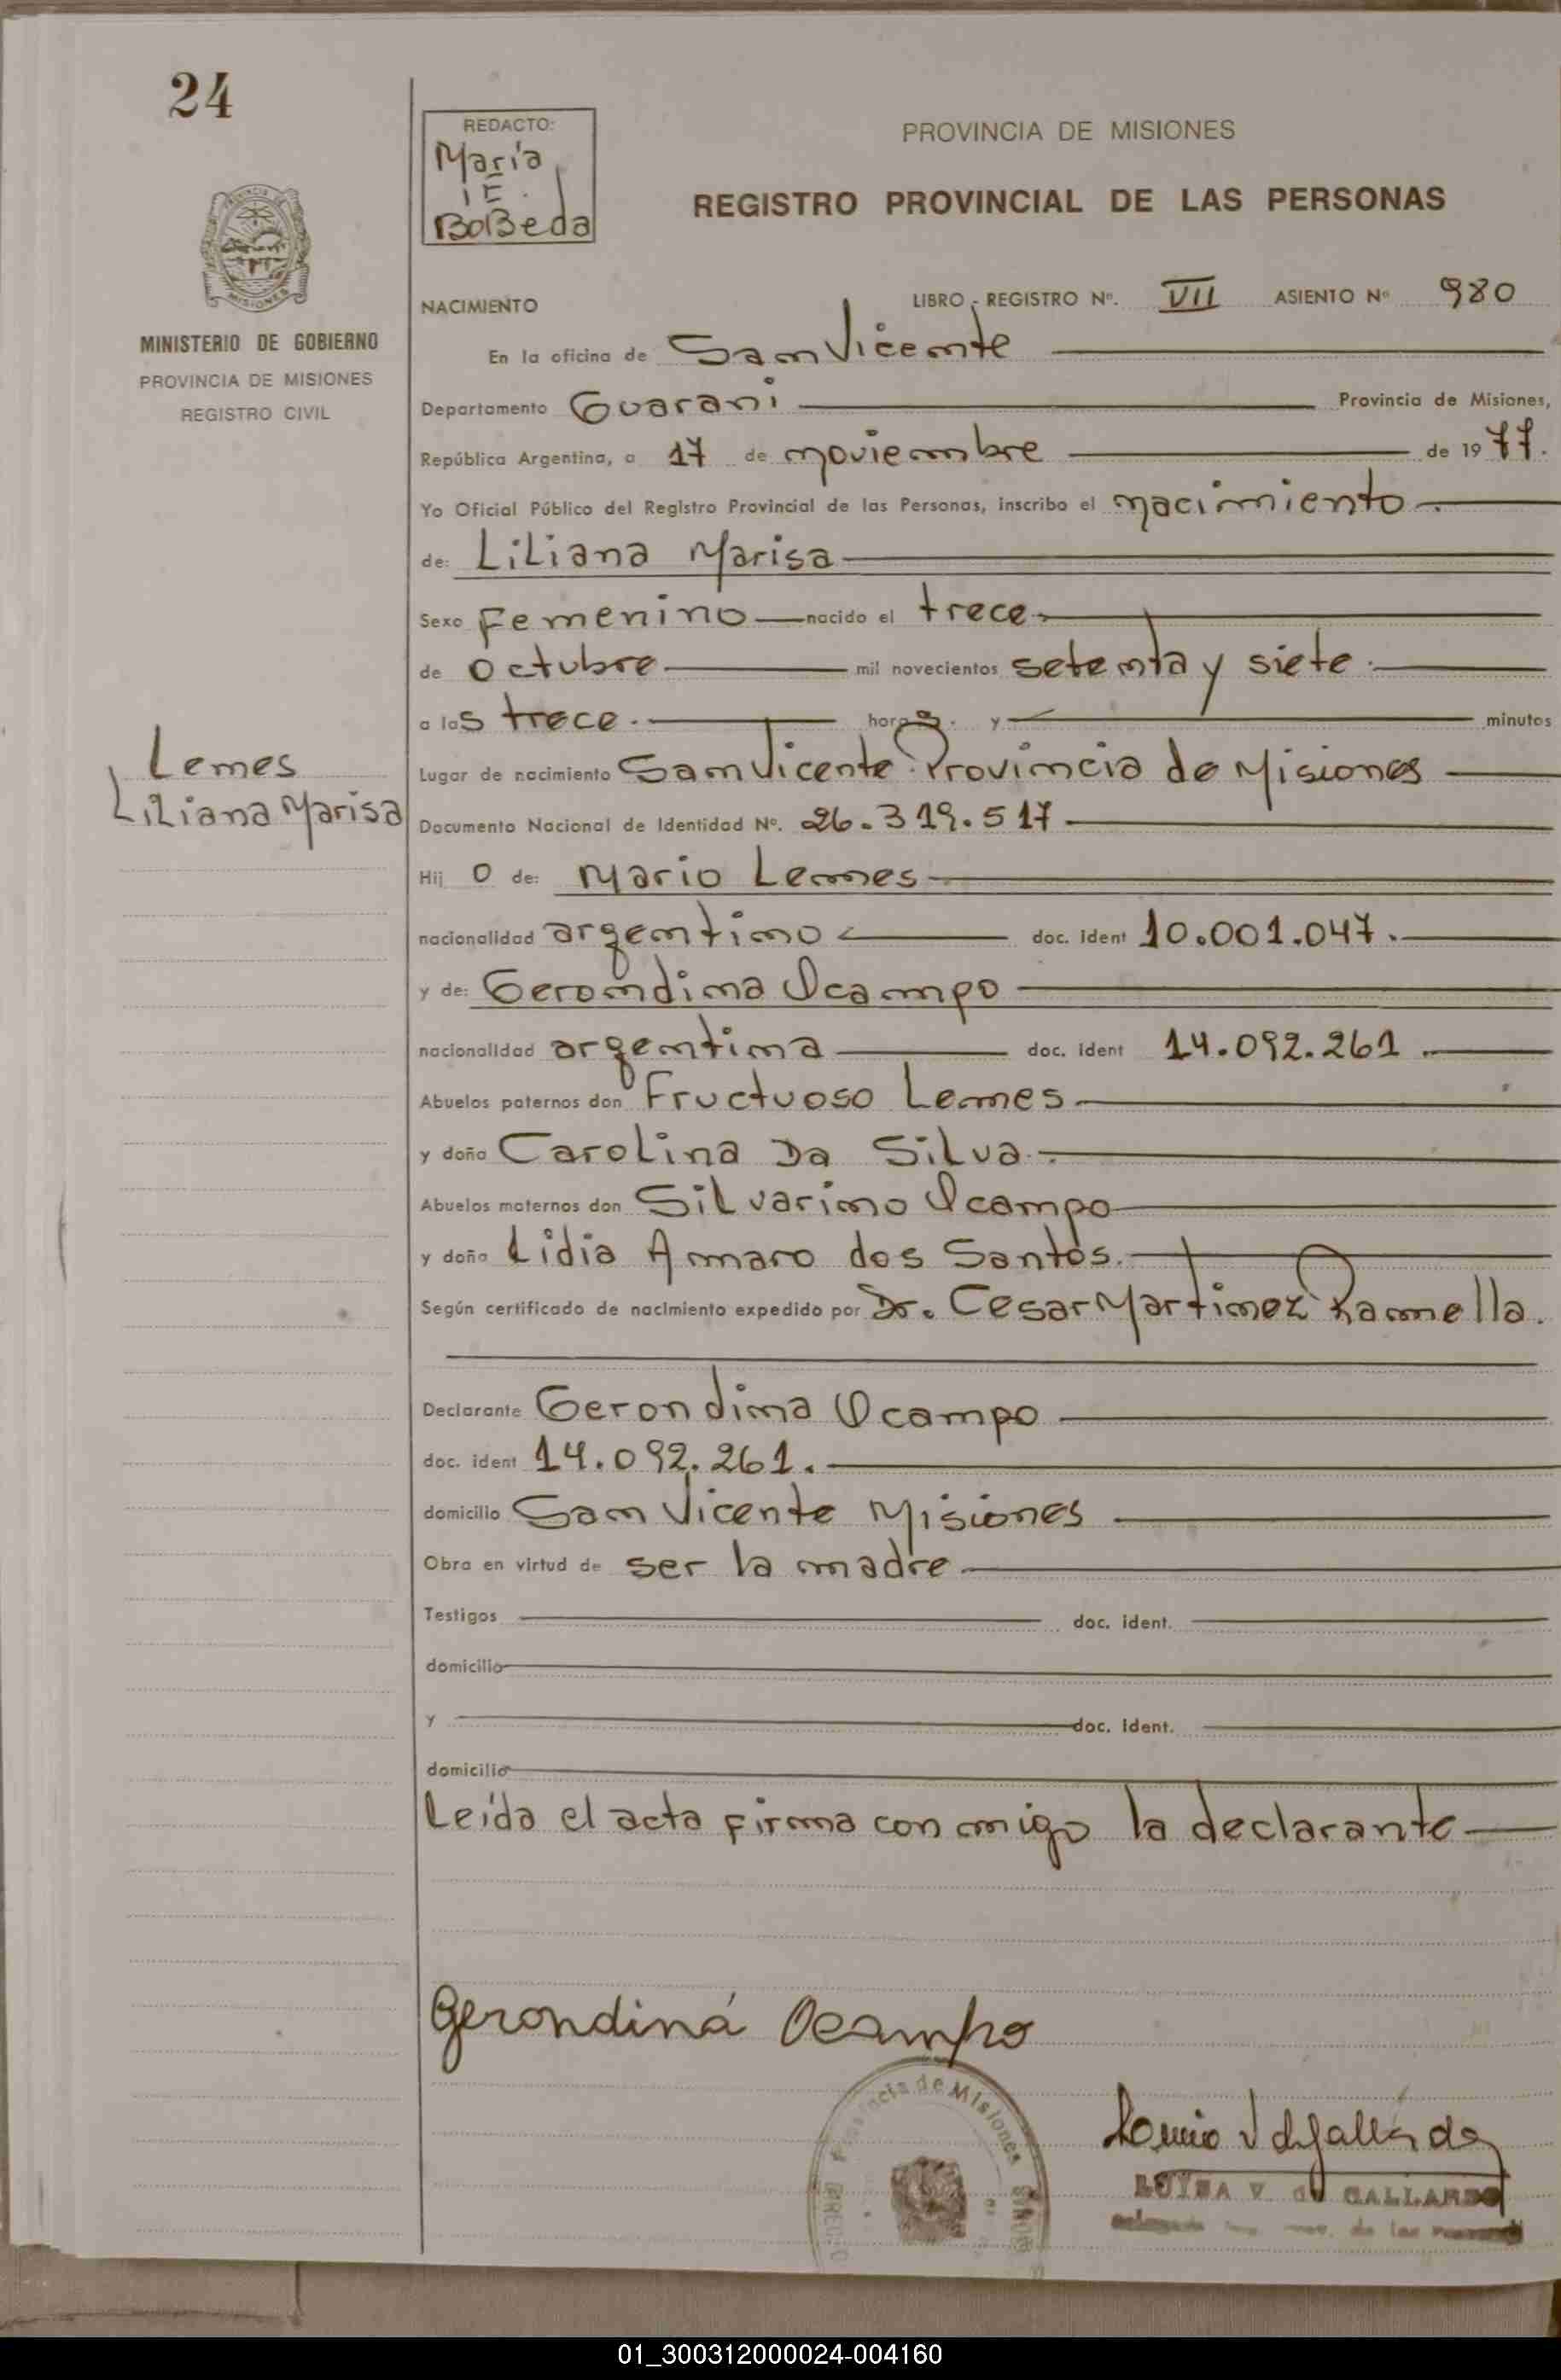 24
REDACTO:
María
E.
BoBeda
PROVINCIA DE MISIONES
REGISTRO PROVINCIAL DE LAS PERSONAS
MINISTERIO DE GOBIERNO
PROVINCIA DE MISIONES
REGISTRO CIVIL
NACIMIENTO LIBRO - REGISTRO Nº. VII ASIENTO Nº 980
En la oficina de San Vicente
Departamento Guarani Provincia de Misiones,
República Argentina, a 17 de noviembre de 1977.
Yo Oficial Público del Registro Provincial de las Personas, inscribo el nacimiento
de: Liliana Marisa
Sexo Femenino nacido el trece
de Octubre mil novecientos setenta y siete.
a las trece. horas. y minutos
Lemes
Liliana Marisa
Lugar de nacimiento San Vicente Provincia de Misiones
Documento Nacional de Identidad Nº. 26.319.517
Hij o de: Mario Lemes
nacionalidad argentino doc. ident 10.001.047.
y de: Gerondina Ocampo
nacionalidad argentina doc. ident 14.092.261.
Abuelos paternos don Fructuoso Lemes
y doña Carolina Da Silva.
Abuelos maternos don Silvarino Ocampo
y doña Lidia Amaro dos Santos.
Según certificado de nacimiento expedido por Dr. Cesar Martinez Ramella.
Declarante Gerondina Ocampo
doc. ident 14.092.261.
domicilio San Vicente Misiones
Obra en virtud de ser la madre
Testigos doc. ident.
domicilio
y doc. ident.
domicilio
Leída el acta firma conmigo la declarante
Gerondina Ocampo
Provincia de Misiones
LUISA V. de GALLARDO
de las
01_300312000024-004160